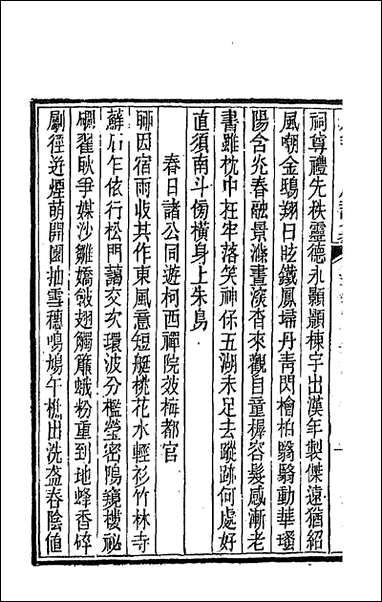 祠尊禮先秩靈德永顯顯棟宇出漢年製傑遠猶紹
風嘲金鴟翔日眩鐵鳳埽丹青閃檜柏翳翳動華璚
陽含兆春融景滌晝漪香來觀自童樨容髮感漸老
書雖枕中在牢落笑神伓五湖未足去蹤跡何處好
直須南斗傍橫身上朱鳥
春日諸公同遊柯西禪院效梅都官
聊因宿雨收其作東風意短艇桃花水輕衫竹林寺
蘚石乍依行松門藹交次環波分檻瑩密隖鏡樓祕
翟耿爭媒沙雛嬌斂翅觸簾蛾粉重到地蜂香碎
劚徑迸煙萌開園抽雪穗鳴鳩午樹出洗盞春陰値